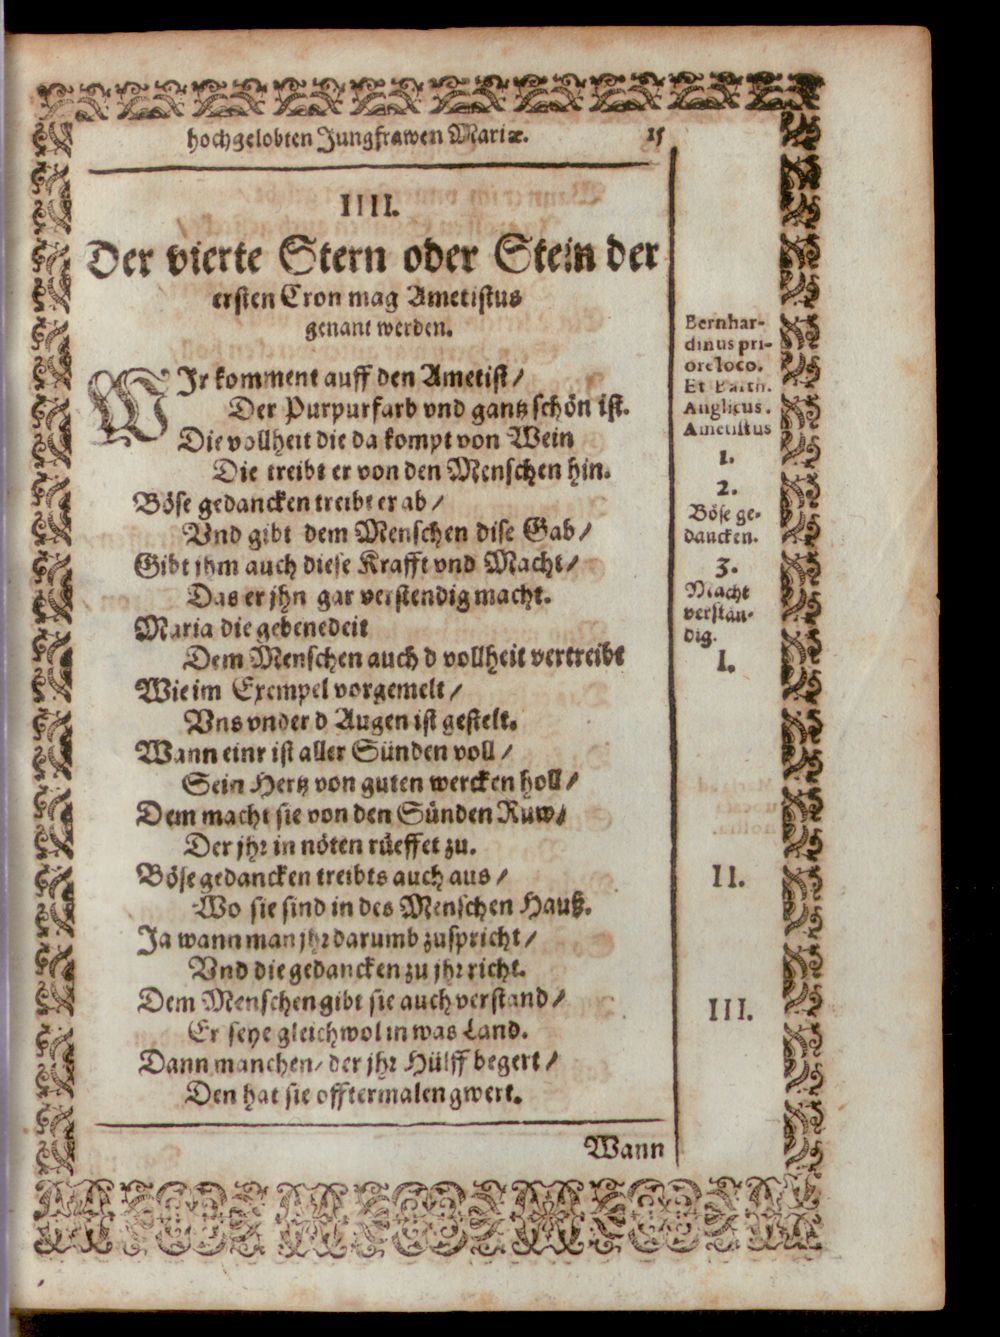 hochgelobten Jungfrawen Mariæ. 15
IIII.
Der vierte Stern oder Stein der
ersten Cron mag Ametistus
genant werden.
WIr komment auff den Ametist /
Der Purpurfarb vnd gantz schön ist.
Die vollheit die da kompt von Wein
Die treibt er von den Menschen hin.
Böse gedancken treibt er ab /
Vnd gibt dem Menschen dise Gab /
Gibt jhm auch diese Krafft vnd Macht /
Das er jhn gar verstendig macht.
Maria die gebenedeit
Dem Menschen auch d vollheit vertreibt
Wie im Exempel vorgemelt /
Vns vnder d Augen ist gestelt.
Wann einr ist aller Sünden voll /
Sein Hertz von guten wercken holl /
Dem macht sie von den Sünden Rüw /
Der jhr in nöten rüeffet zu.
Böse gedancken treibts auch aus /
Wo sie sind in des Menschen Hauß.
Ja wann man jhr darumb zuspricht /
Vnd die gedancken zu jhr richt.
Dem Menschen gibt sie auch verstand /
Er seye gleichwol in was Land.
Dann manchen / der jhr Hülff begert /
Den hat sie offtermalen gwert.
Wann
Bernhar-
dinus pri-
ore loco.
Et Barth.
Anglicus.
Ametistus
1.
2.
Böse ge-
dancken.
3.
Macht
verstän-
dig.
I.
II.
III.